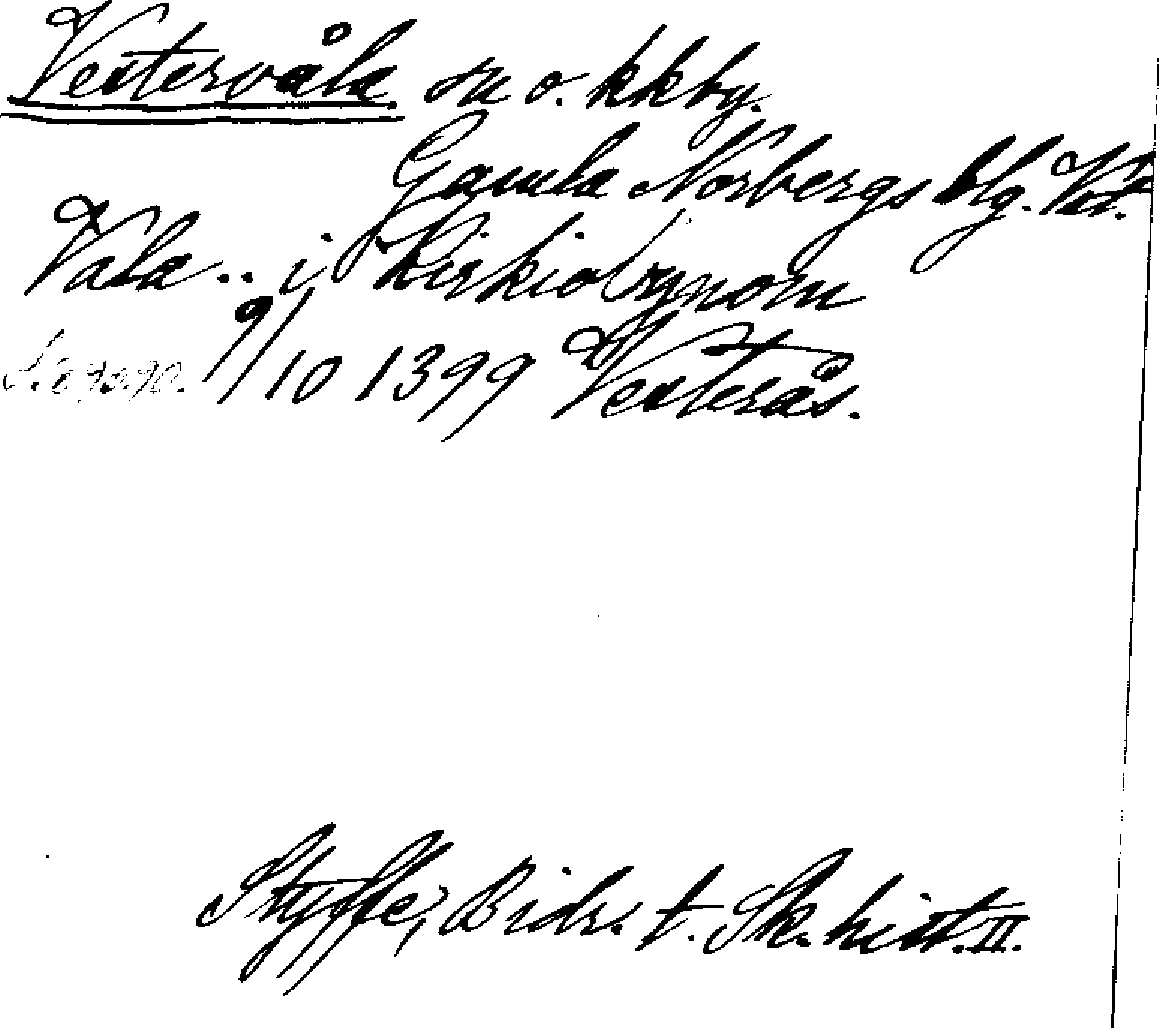 Vestervåla sn o. kkby.
Gamla Norbergs blg. Vst.
Vala .. i Kirkiobynom
9/10 1399 Vesterås.
Styffe, Bidr. t. Sk. hist. II.